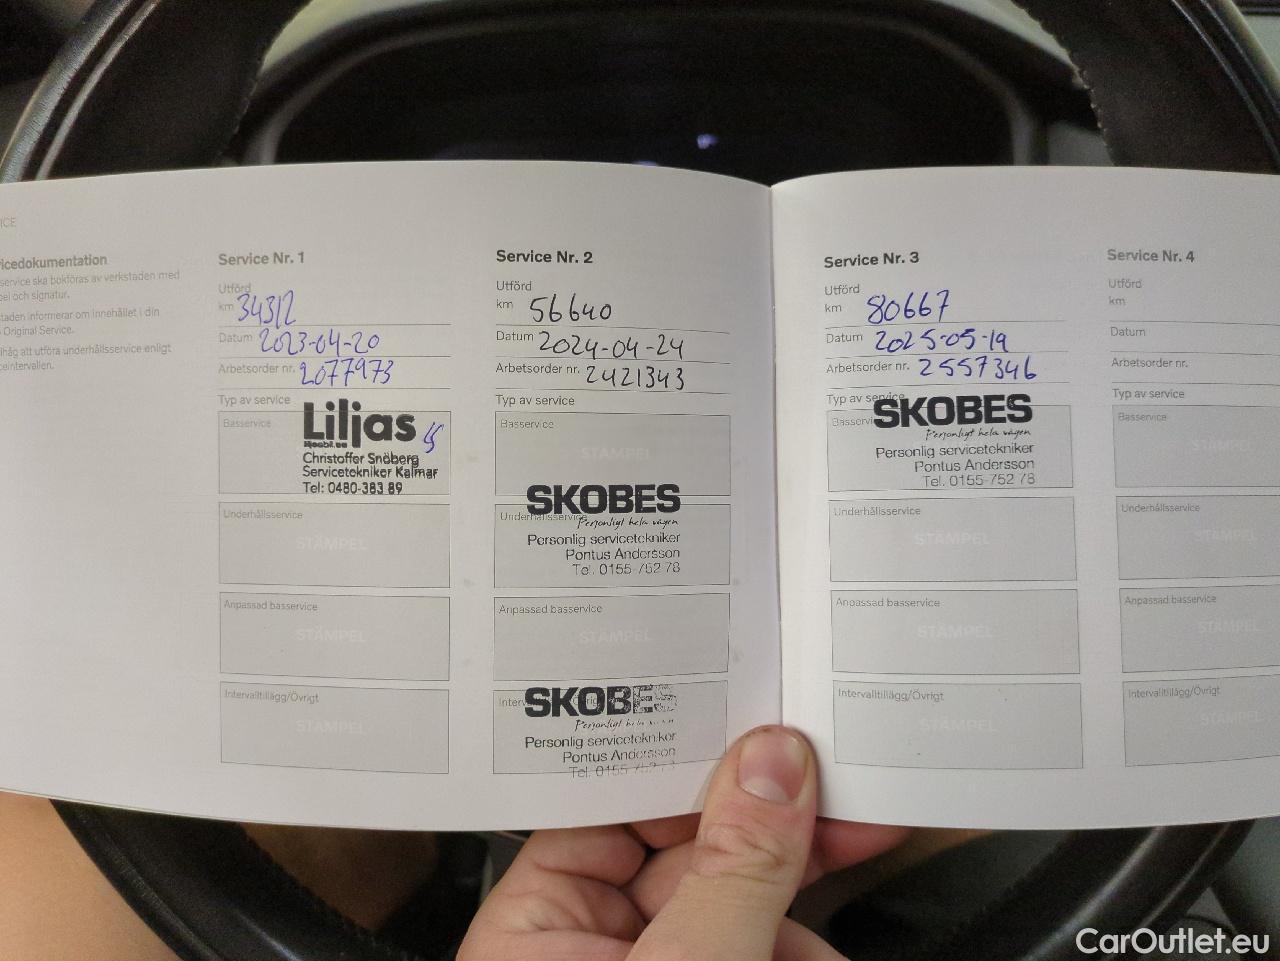 ICE
icedokumentation
service ska bokföras av verkstaden med
el och signatur.
taden informerar om innehållet i din
Original Service.
ihåg att utföra underhållsservice enligt
eintervallen.
Service Nr. 1
Utförd
km 34312
Datum 2023-04-20
Arbetsorder nr. 2077973
Typ av service
Basservice
Liljas
liljasbil.se
Christoffer Snöberg
Servicetekniker Kalmar
Tel: 0480-383 89
Underhållsservice
STÄMPEL
Anpassad basservice
STÄMPEL
Intervalltillägg/Övrigt
STÄMPEL
Service Nr. 2
Utförd
km 56640
Datum 2024-04-24
Arbetsorder nr. 2421343
Typ av service
Basservice
STÄMPEL
SKOBES
Underhållsservice
Personligt hela vägen
Personlig servicetekniker
Pontus Andersson
Tel. 0155-752 78
Anpassad basservice
STÄMPEL
SKOBES
Personligt hela vägen
Personlig servicetekniker
Pontus Andersson
Tel. 0155
Service Nr. 3
Utförd
km 80667
Datum 2025-05-19
Arbetsorder nr. 2557346
Typ av service
SKOBES
Basservi
Personligt hela vägen
Personlig servicetekniker
Pontus Andersson
Tel. 0155-752 78
Underhållsservice
STÄMPEL
Anpassad basservice
STÄMPEL
Intervalltillägg/Övrigt
STÄMPEL
Service Nr. 4
Utförd
km
Datum
Arbetsorder nr.
Typ av service
Basservice
STÄMPEL
Underhållsservice
STÄMPEL
Anpassad basservice
STÄMPEL
Intervalltillägg/Övrigt
STÄMPEL
CarOutlet.eu